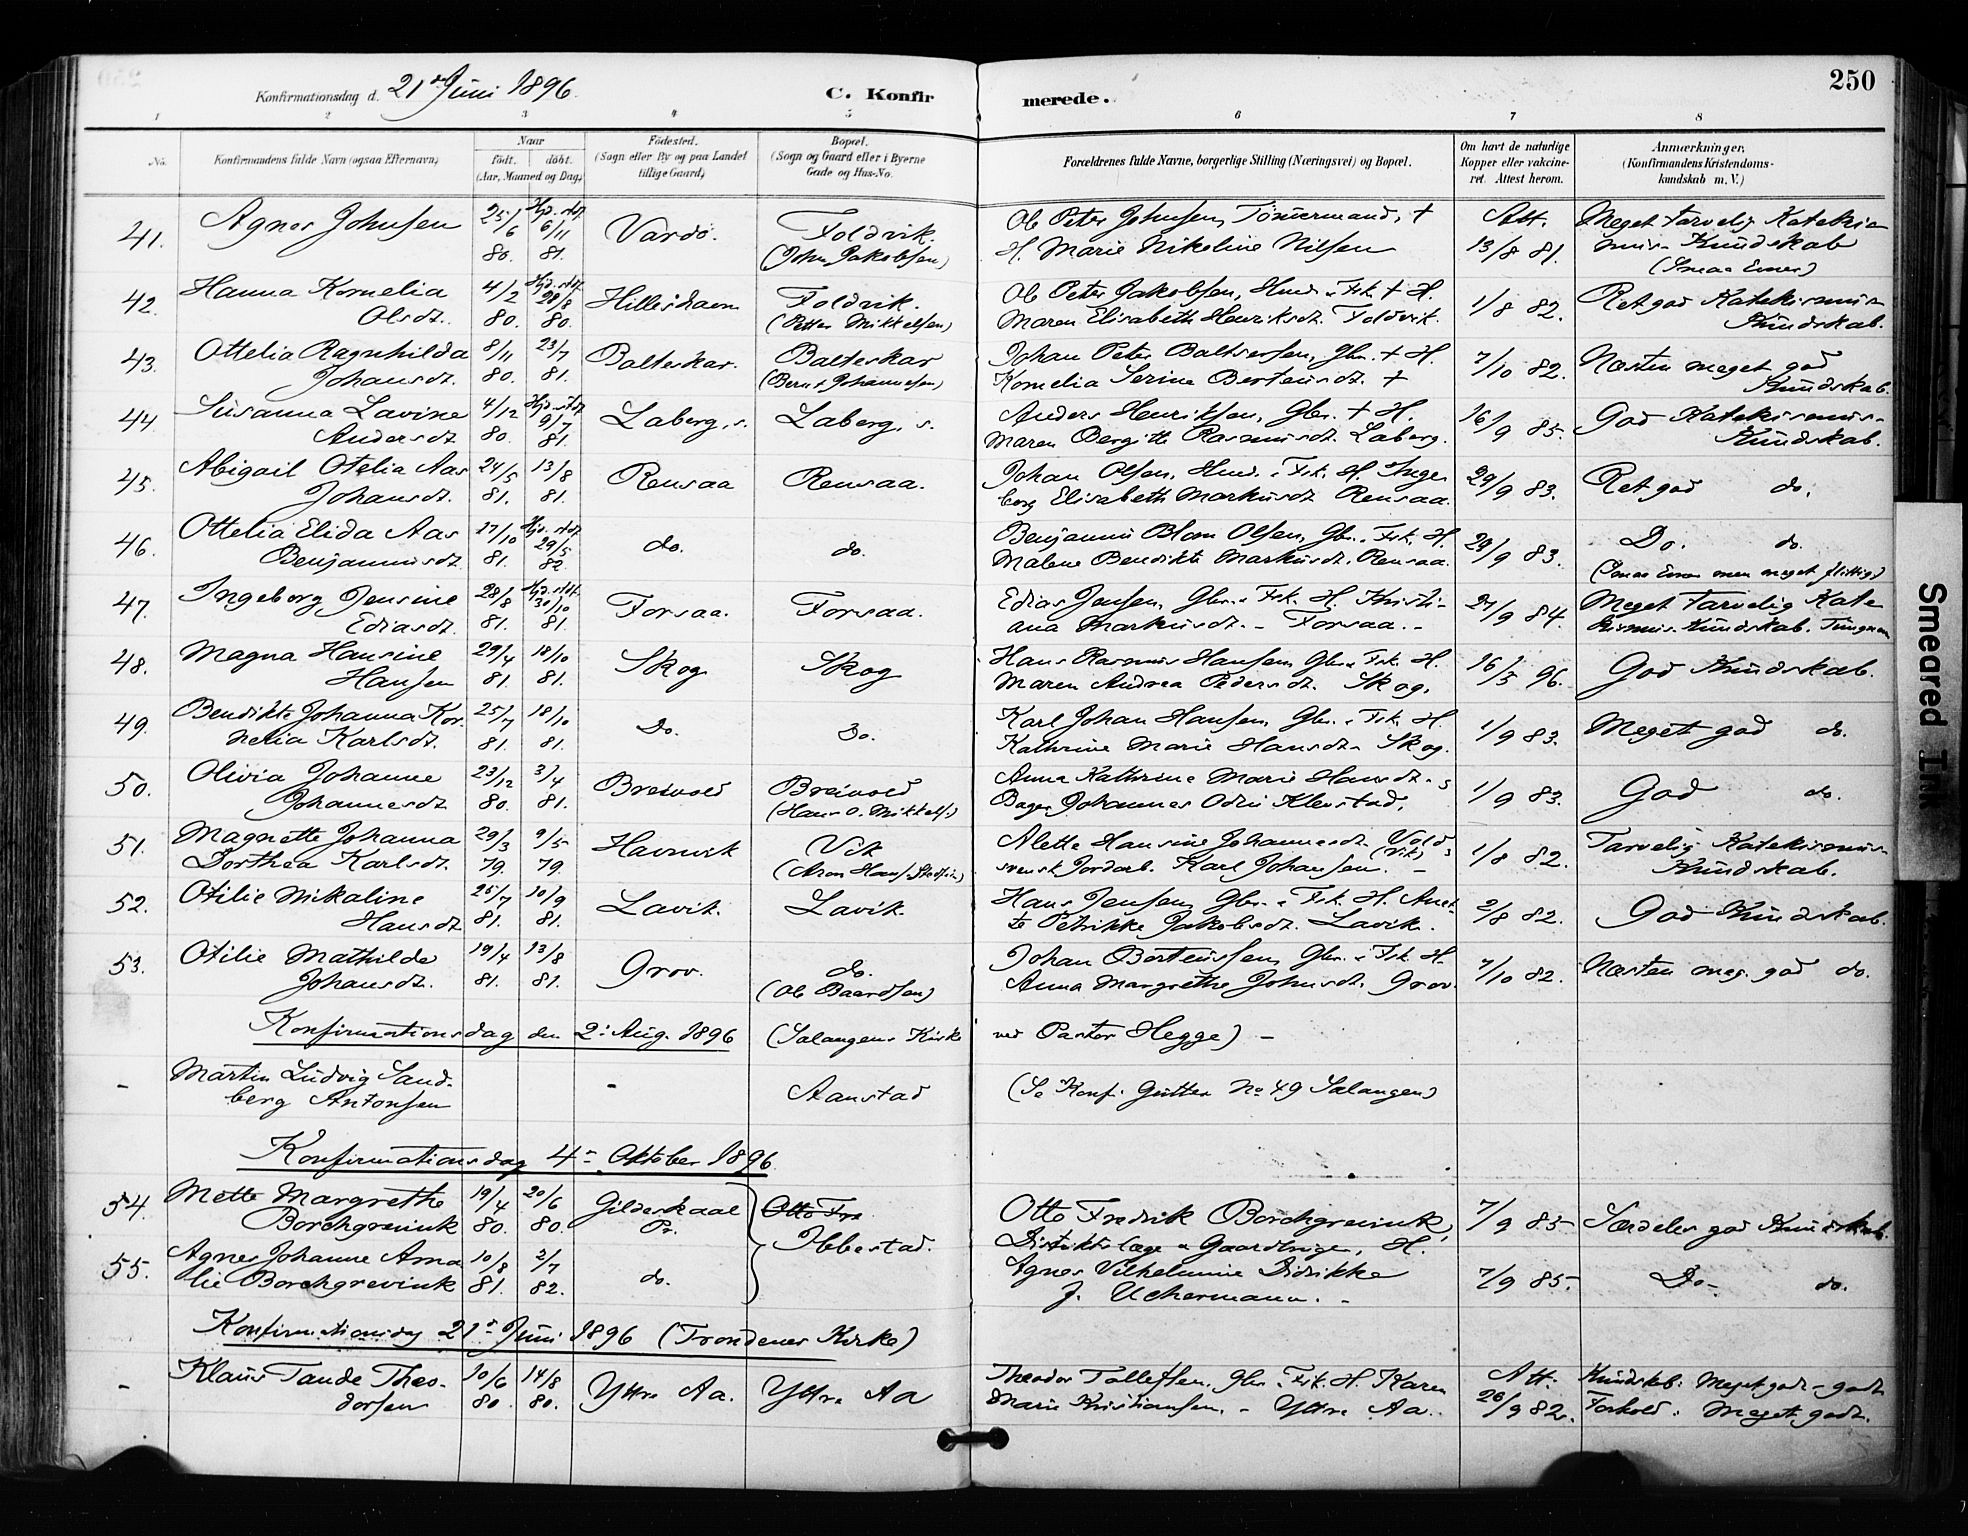 250
Konfirmationsdag d. 21de Juni 1896.
C. Konfirmerede.
1 2 3 4 5 6 7 8
No.
Konfirmandens fulde Navn (ogsaa Efternavn)
Naar
født. døbt.
(Aar, Maaned og Dag)
Fødested.
(Sogn eller By og paa Landet
tillige Gaard)
Bopæl.
(Sogn og Gaard eller i Byerne
Gade og Hus-No.
Forældrenes fulde Navne, borgerlige Stilling (Næringsvei) og Bopæl.
Om havt de naturlige
Kopper eller vakcine-
ret. Attest herom.
Anmærkninger,
(Konfirmandens Kristendoms-
kundskab m. V.)
41. Agnes Johnsen 25/6 80. Hjd. døbt. 6/11 81. Vardø. Foldvik. (John Jakobsen) Ole Peter Johnsen, Tømmermand, + Att.
H. Marie Nikoline Nilsen 13/8 81. Meget tarvelig Katekis-
mus-Kundskab
(Smaa Evner)
42. Hanna Kornelia
Olsdt. 4/2 80. Hjd. døbt. 28/8 80. Hilleshavn Foldvik. (Petter Mikkelsen) Ole Peter Jakobsen, Hmd. & Fsk. + H.
Maren Elisabeth Henriksdt. Foldvik. 1/8 82. Ret god Katekismus-
Kundskab.
43. Ottelia Ragnhilda
Johansdt. 8/11 80. 23/7 81. Balteskar. Balteskar (Bernt Johannesen) Johan Peter Baltsersen, Gbr. + H.
Kornelia Serine Berteusdt. + 7/10 82. Næsten meget god
Kundskab.
44. Susanna Lavine
Andersdt 4/12 80. Hjd. døbt. 9/7 81. Laberg, s. Laberg, s. Anders Henriksen, Gbr. + H.
Maren Bergitte Rasmusdt. Laberg. 16/9 85. God Katekismus-
Kundskab.
45. Abigail Otelia Aas
Johansdt. 24/5 81. 13/8 81. Rensaa Rensaa. Johan Olsen, Hmd. & Fsk. H. Inge
borg Elisabeth Markusdt Rensaa. 29/9 83. Ret god do.
46. Ottelia Elida Aas
Benjaminsdt. 17/10 81. Hjd. døbt. 29/5 82 do. do. Benjamin Blom Olsen, Gbr. & Fsk. H.
Malene Bendikte Markusdt. Rensaa. 29/9 83. Do. do.
(Smaa Evner men meget flittig)
47. Ingeborg Jensine
Ediasdt. 28/8 81. Hjd. døbt. 30/10 81. Forsaa. Forsaa. Edias Jensen, Gbr. & Fsk. H. Kristi-
ana Markusdt. - Forsaa. - 27/9 84. Meget tarvelig Kate
kismus-Kundskab.
48. Magna Hansine
Hansen 29/4 81. 18/10 81. Skog Skog Hans Rasmus Hansen, Gbr & Fsk. H.
Maren Andrea Pedersdt. Skog. 16/5 96. God Kundskab.
49. Bendikte Johanna Kor-
nelia Karlsdt. 25/7 81. 18/10 81. Do. Do. Karl Johan Hansen, Gbr. & Fsk. H.
Kathrine Marie Hansdt. Skog. 1/9 83. Meget god do.
50. Olivia Johanne
Johannesdt 23/12 80. 3/4 81. Breivold Breivold (Hans O. Mikkels.) Anna Kathrine Marie Hansdt. &
Bager Johannes Odin Klevstad. 1/9 83. God do.
51. Magnette Johanna
Dorthea Karlsdt. 29/3 79. 9/5 79. Havnvik Vik (Aron Hans) Alette Hansine Johannesdt. Vold (Vik) &
svensk Jordarb. Karl Johansen. - 1/8 82. Tarvelig Katekismus-
Kundskab.
52. Otilie Nikaline
Hansdt 25/7 81. 10/9 81. Lavik. Lavik. Hans Jensen, Gbr. & Fsk. H. Anet-
te Petrikke Jakobsdt. Lavik. 2/8 82. God Kundskab.
53. Otilie Mathilde
Johansdt. 19/4 81. 13/8 81. Grov. do. (Ole Baardsen) Johan Berteussen, Gbr. & Fsk H.
Anna Margrethe Johnsdt. Grov. 7/10 82. Næsten meg. god do.
Konfirmationsdag den 2: Aug. 1896 (Salangens Kirke ved Pastor Hegge) -
- Martin Ludvig Sand-
berg Antonsen - Aanstad (Se Konf. Gutter No 49 Salangen)
Konfirmationsdag 4- Oktober 1896
54. Mette Margrethe
Borchgrevink 19/4 80. 20/6 80. Gildeskaal
Pr. Otto Fre
Ibbestad. Otto Fredrik Borchgrevink,
Distriktslæge & Gaardbruger, H. 7/9 85- Særdeles god Kundskab.
55. Agnes Johanne Ama
lie Borchgrevink 10/8 81. 2/7 82. do. Agnes Vilhelmine Didrikke
f. Uchermann. - 7/9 85- Do- do.
Konfirmationsdag 21de Juni 1896 (Trondenes Kirke)
- Klaus Tande Theo-
dorsen 10/6 80. 14/8 80. Yttre Aa. Yttre Aa Theodor Tollefsen, Gbr & Fsk. H. Karen
Marie Kristiansen. - Yttre Aa. Att. 26/9 82. Kundskab: Meget godt - godt
Forhold: Meget godt.
Smeared Ink